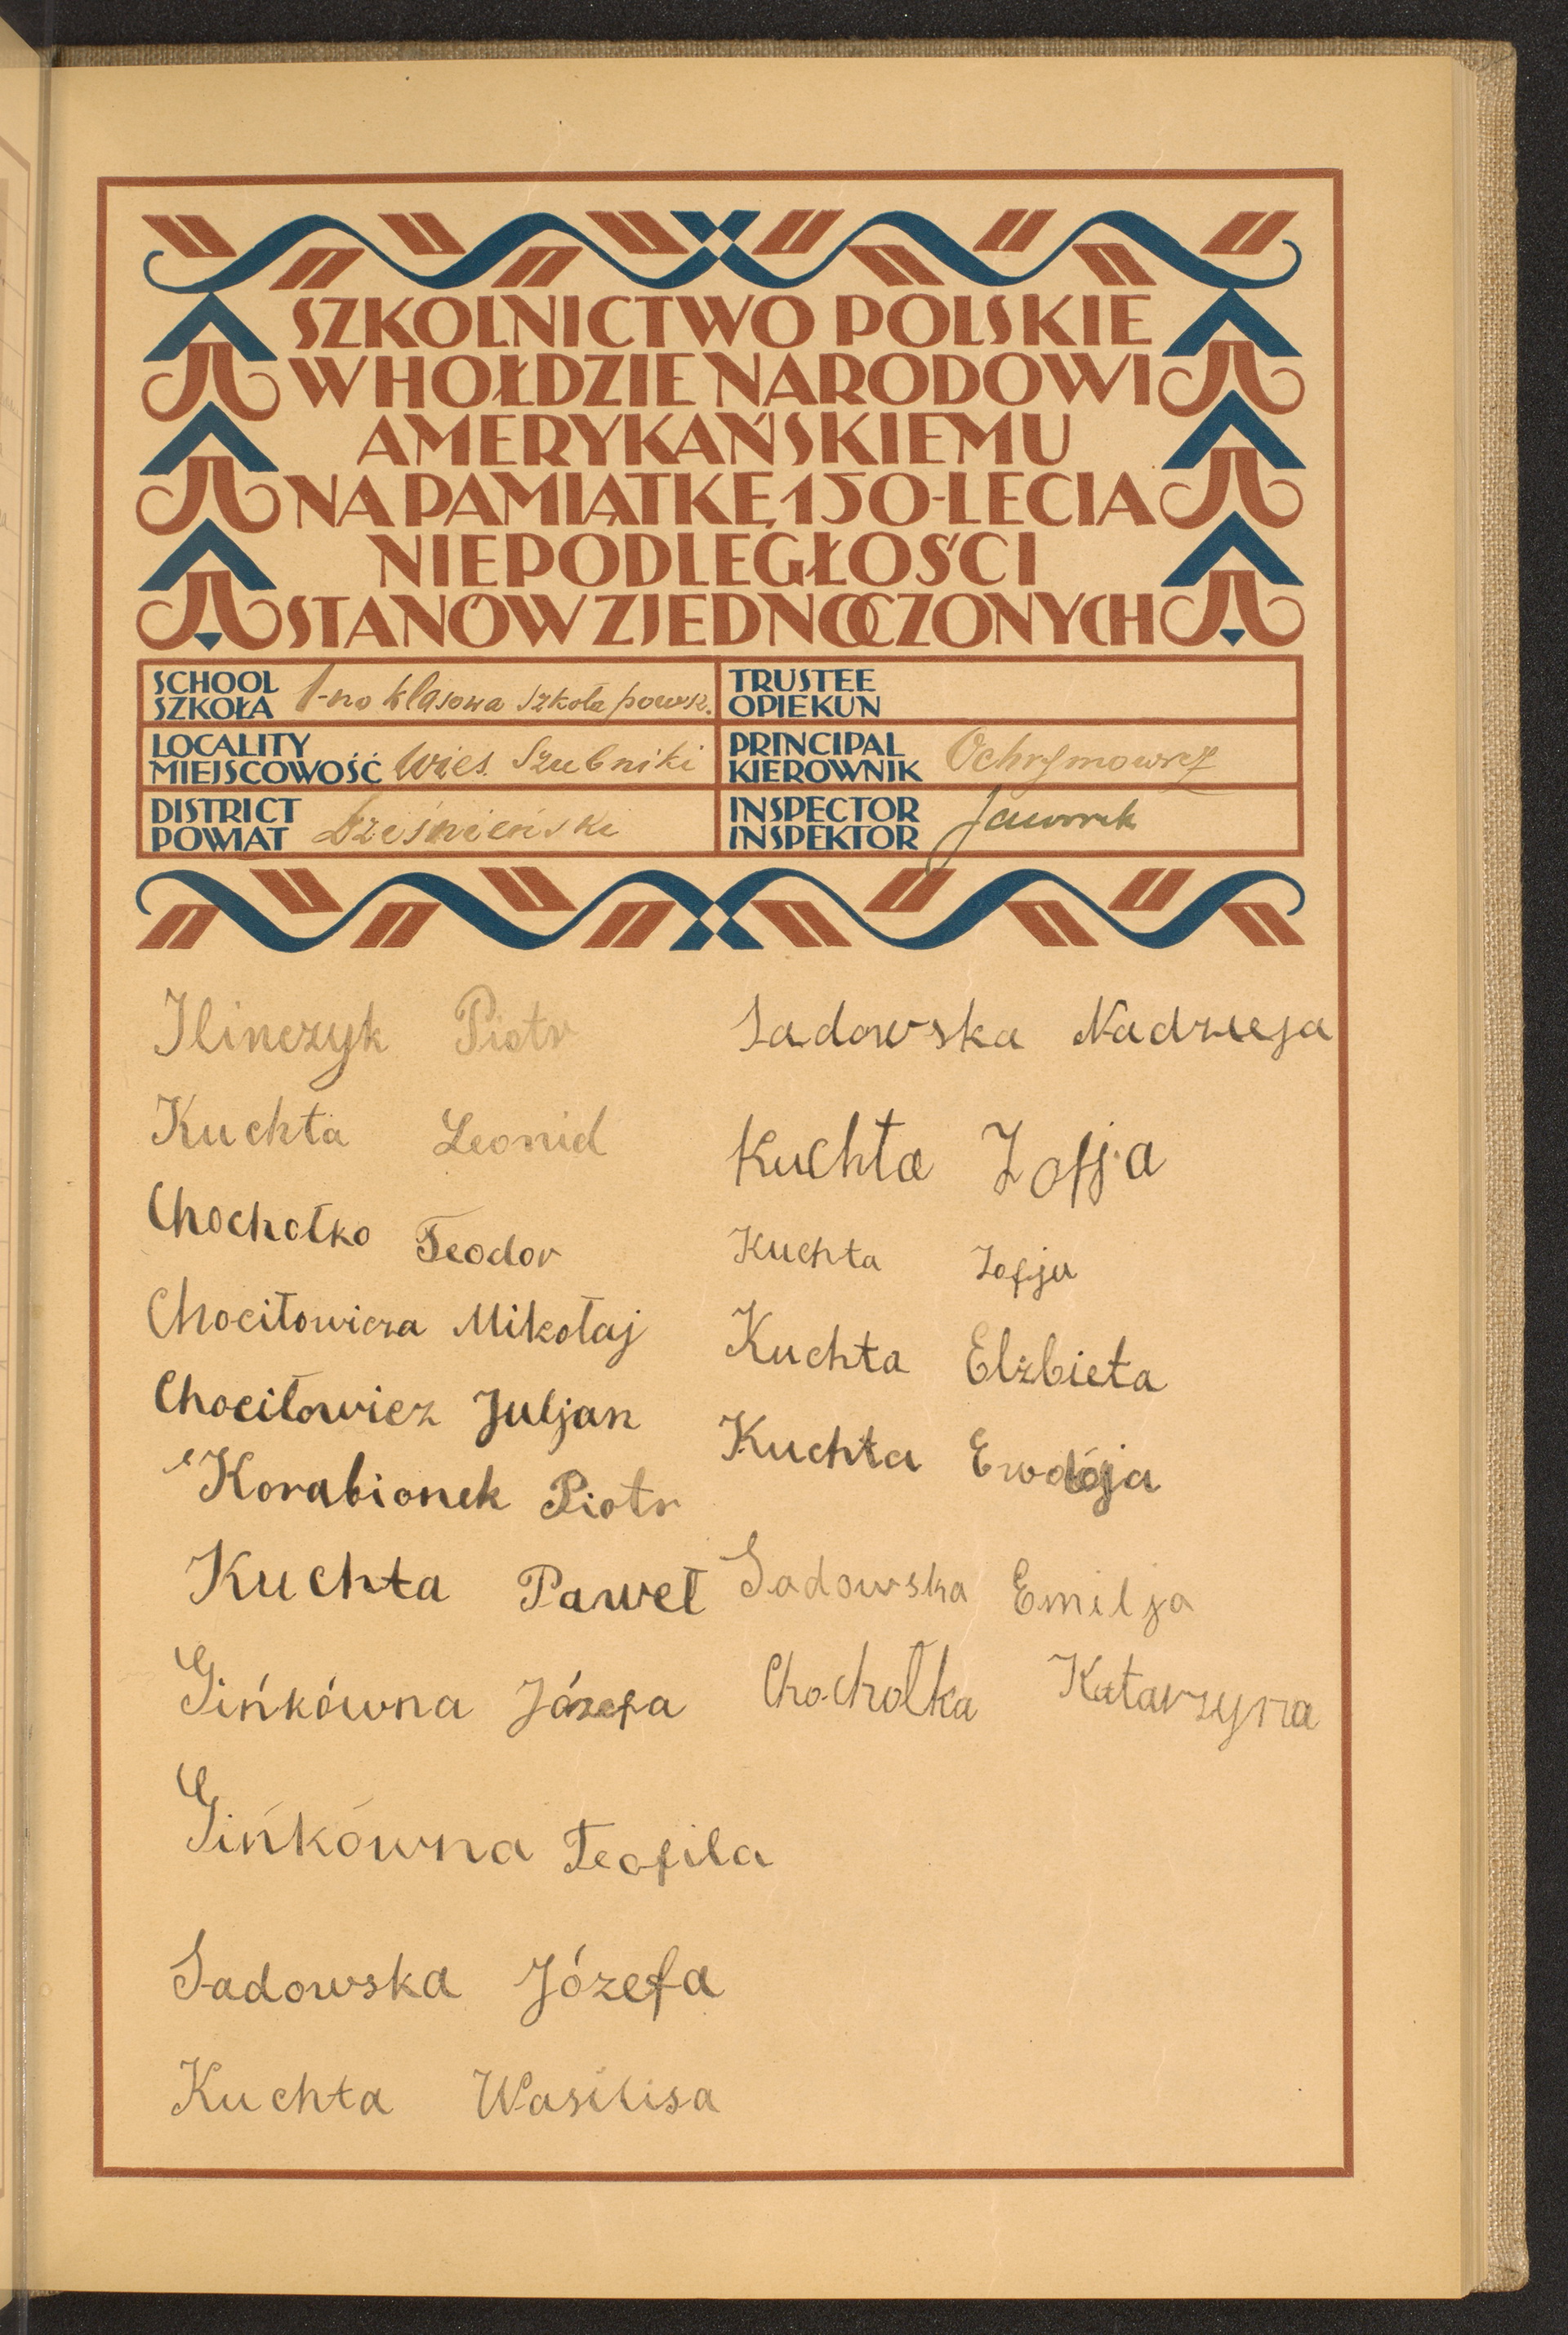 SZKOLNICTWO POLSKIE
W HOŁDZIE NARODOWI
AMERYKAŃSKIEMU
NA PAMIĄTKĘ 150-LECIA
NIEPODLEGŁOŚCI
STANÓW ZJEDNOCZONYCH
SCHOOL
SZKOŁA 1-no klasowa szkoła powsz.
LOCALITY
MIEJSCOWOŚĆ wieś Szubniki
DISTRICT
POWIAT
TRUSTEE
OPIEKUN
PRINCIPAL
KIEROWNIK Ochrymowicz
INSPECTOR
INSPEKTOR Jaworek
Ilinczyk Piotr
Kuchta Leonid
Chochołko Teodor
Chociłowicza Mikołaj
Chociłowicz Juljan
Korabionek Piotr
Kuchta Paweł
Gińkówna Józefa
Gińkówna Teofila
Sadowska Józefa
Kuchta Wasilisa
Sadowska Nadzieja
Kuchta Zofja
Kuchta Zofja
Kuchta Elżbieta
Kuchta
Sadowska Emilja
Chochołka Katarzyna